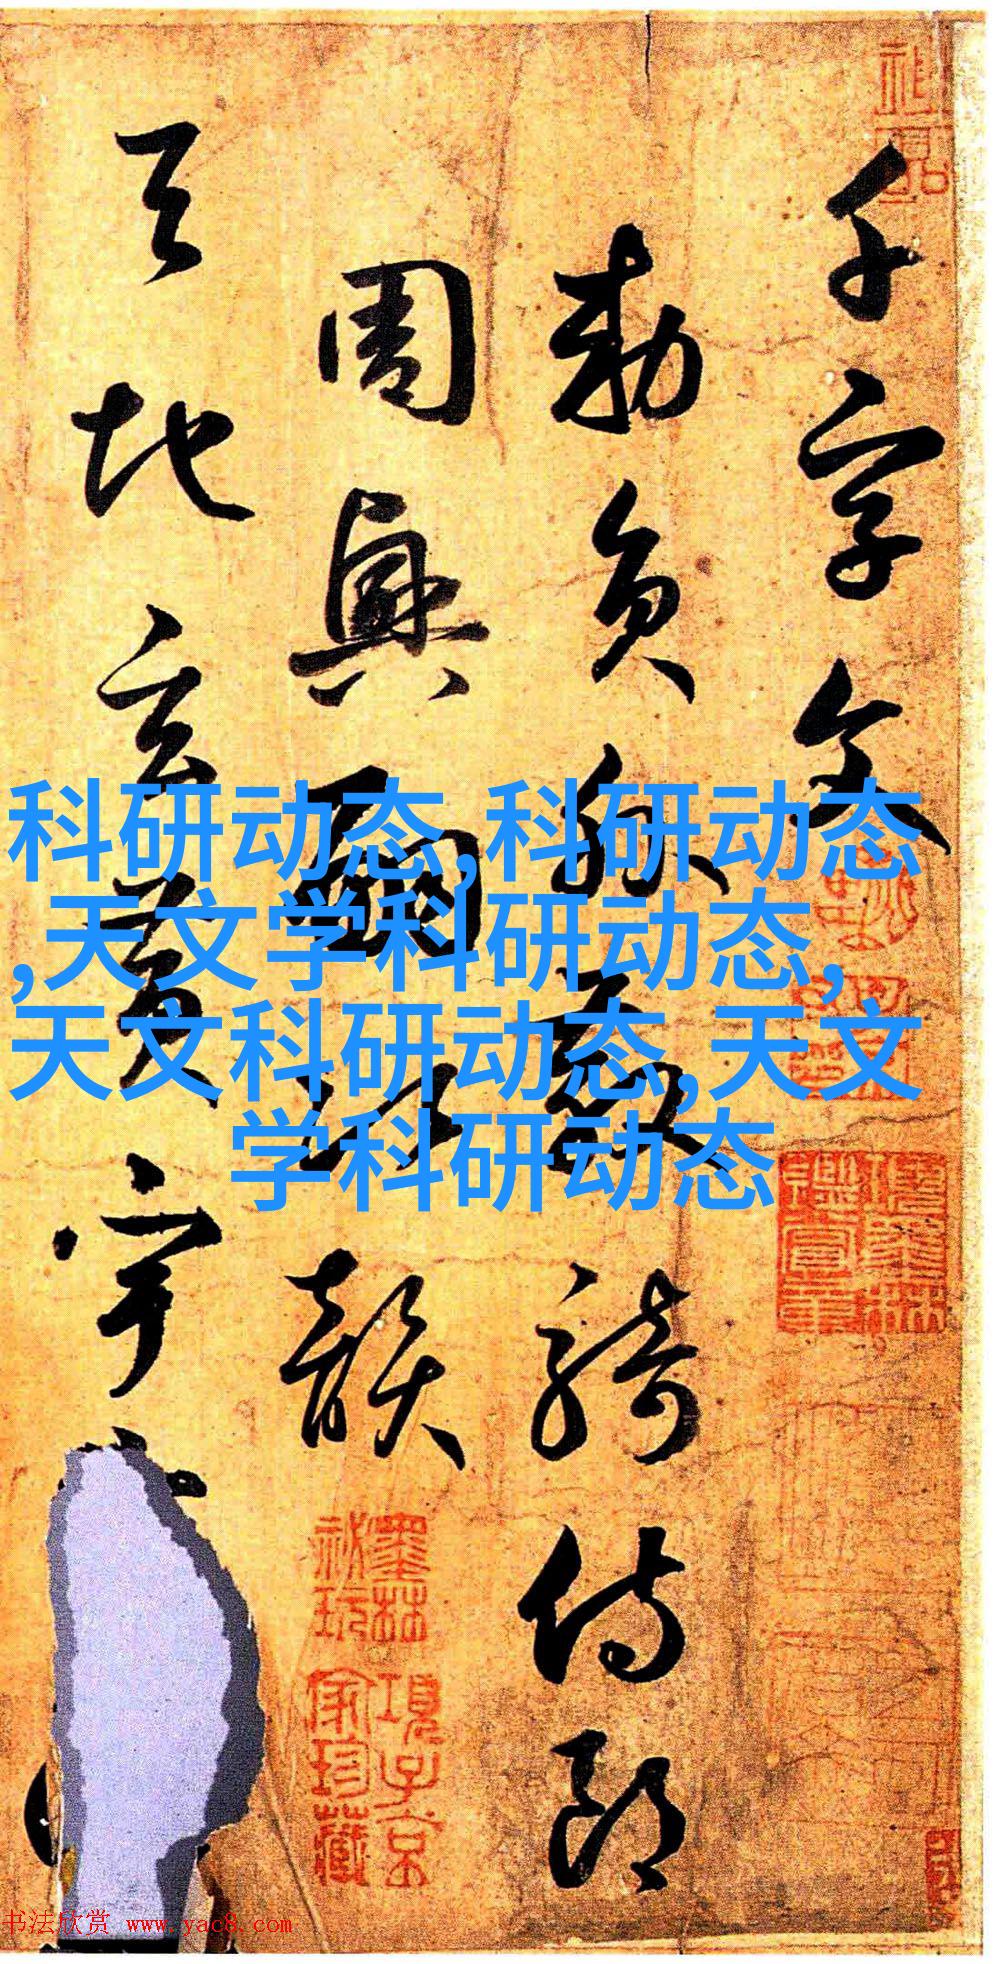 千字文
勅員外散騎侍郎
周興嗣次韻
天地玄黃宇
科研动态,科研动态
,天文学科研动态,
天文科研动态,天文
学科研动态
墨林祕玩
項子京家珍藏
书法欣赏 www.yac8.com